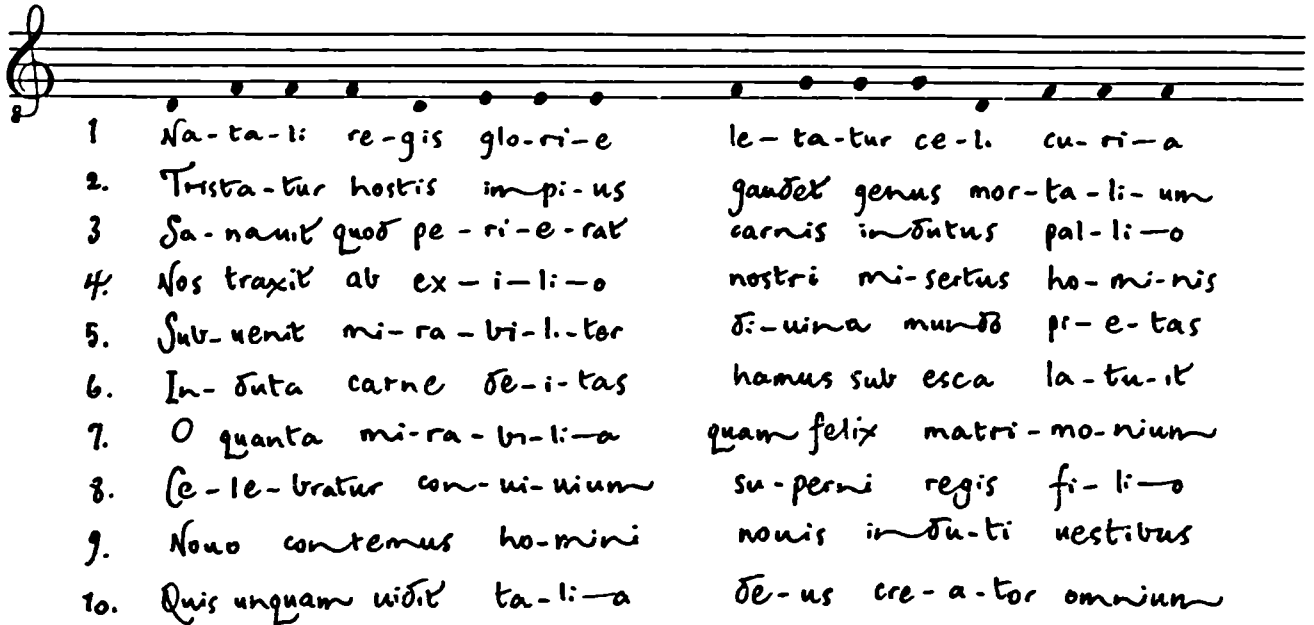 8
1 Na-ta-li re-gis glo-ri-e le-ta-tur ce-li cu-ri-a
2. Trista-tur hostis im-pi-us gaudet genus mor-ta-li-um
3 Sa-nauit quod pe-ri-e-rat carnis indutus pal-li-o
4. Nos traxit ab ex-i-li-o nostri mi-sertus ho-mi-nis
5. Sub-uenit mi-ra-bi-li-ter di-uina mundo pi-e-tas
6. In-duta carne de-i-tas hamus sub esca la-tu-it
7. O quanta mi-ra-bi-li-a quam felix matri-mo-nium
8. Ce-le-bratur con-ui-uium su-perni regis fi-li-o
9. Nouo cantemus ho-mini nouis indu-ti uestibus
10. Quis unquam uidit ta-li-a de-us cre-a-tor omnium